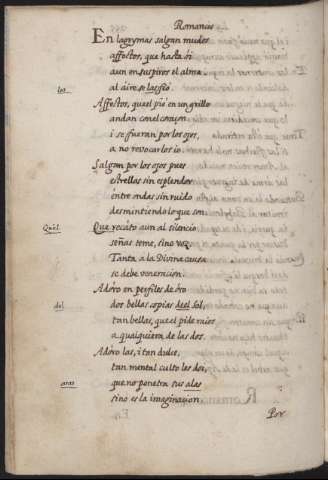 Romances
En lagrymas salgan mudos
affectos, que hasta si
aun en suspiros el alma
los. al aire se las fió.
Affectos, que el pié en un grillo
andan con el coraçon
i se fueran por los ojos,
a no revocarlos io.
Salgan por los ojos pues
estrellas sin esplendor
entre ondas sin ruido
desmintiendo lo que son.
Quèl. Que recáto aun al silencio
señas teme, sino voz
Tanta a la Divina causa
se debe veneracion.
Adóro en perfiles de óro
del dos bellas copias de el Sol,
tan bellas, que el pide raios
a qualquiera de las dos.
Adóro las, i tan dulce,
tan mental culto les doi,
aras que no penetra sus alas
sino es la imaginacion.
Por